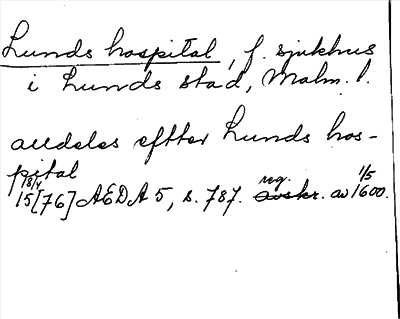 Lunds hospital, f. sjukhus
i Lunds stad, Malm. l.
alldeles effter Lunds hos-
pital
18/4 15[76] AEDA 5, s. 787. reg. avskr. av 1/5 1600.